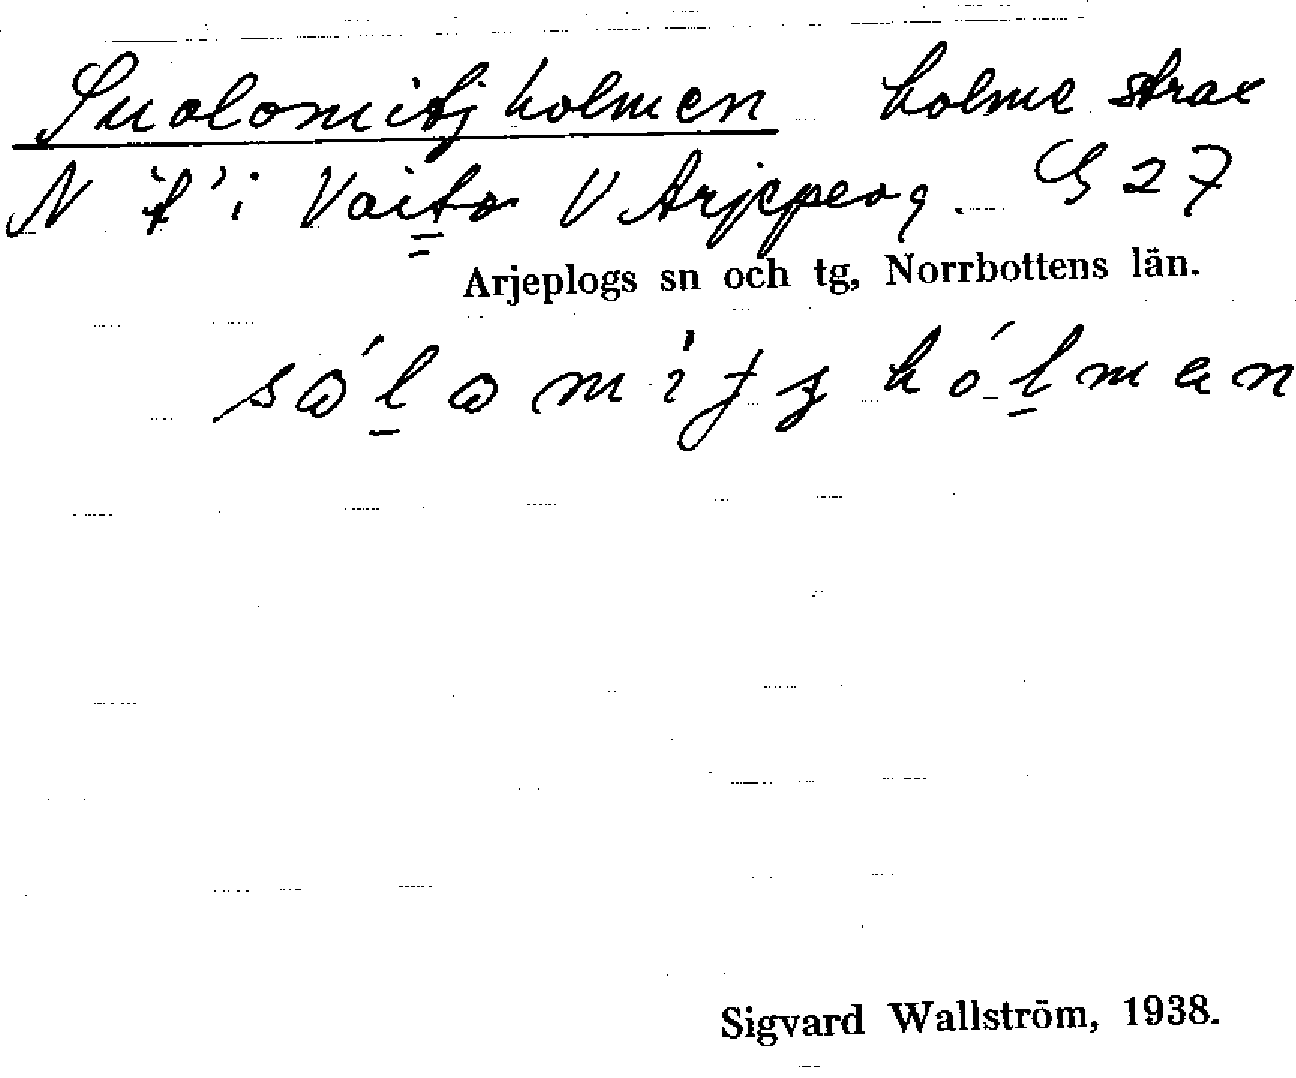 Suolomitjholmen holme strax
N "t" i Vaito V Arjepeog. G 27
Arjeplogs sn och tg, Norrbottens län.
Sigvard Wallström, 1938.